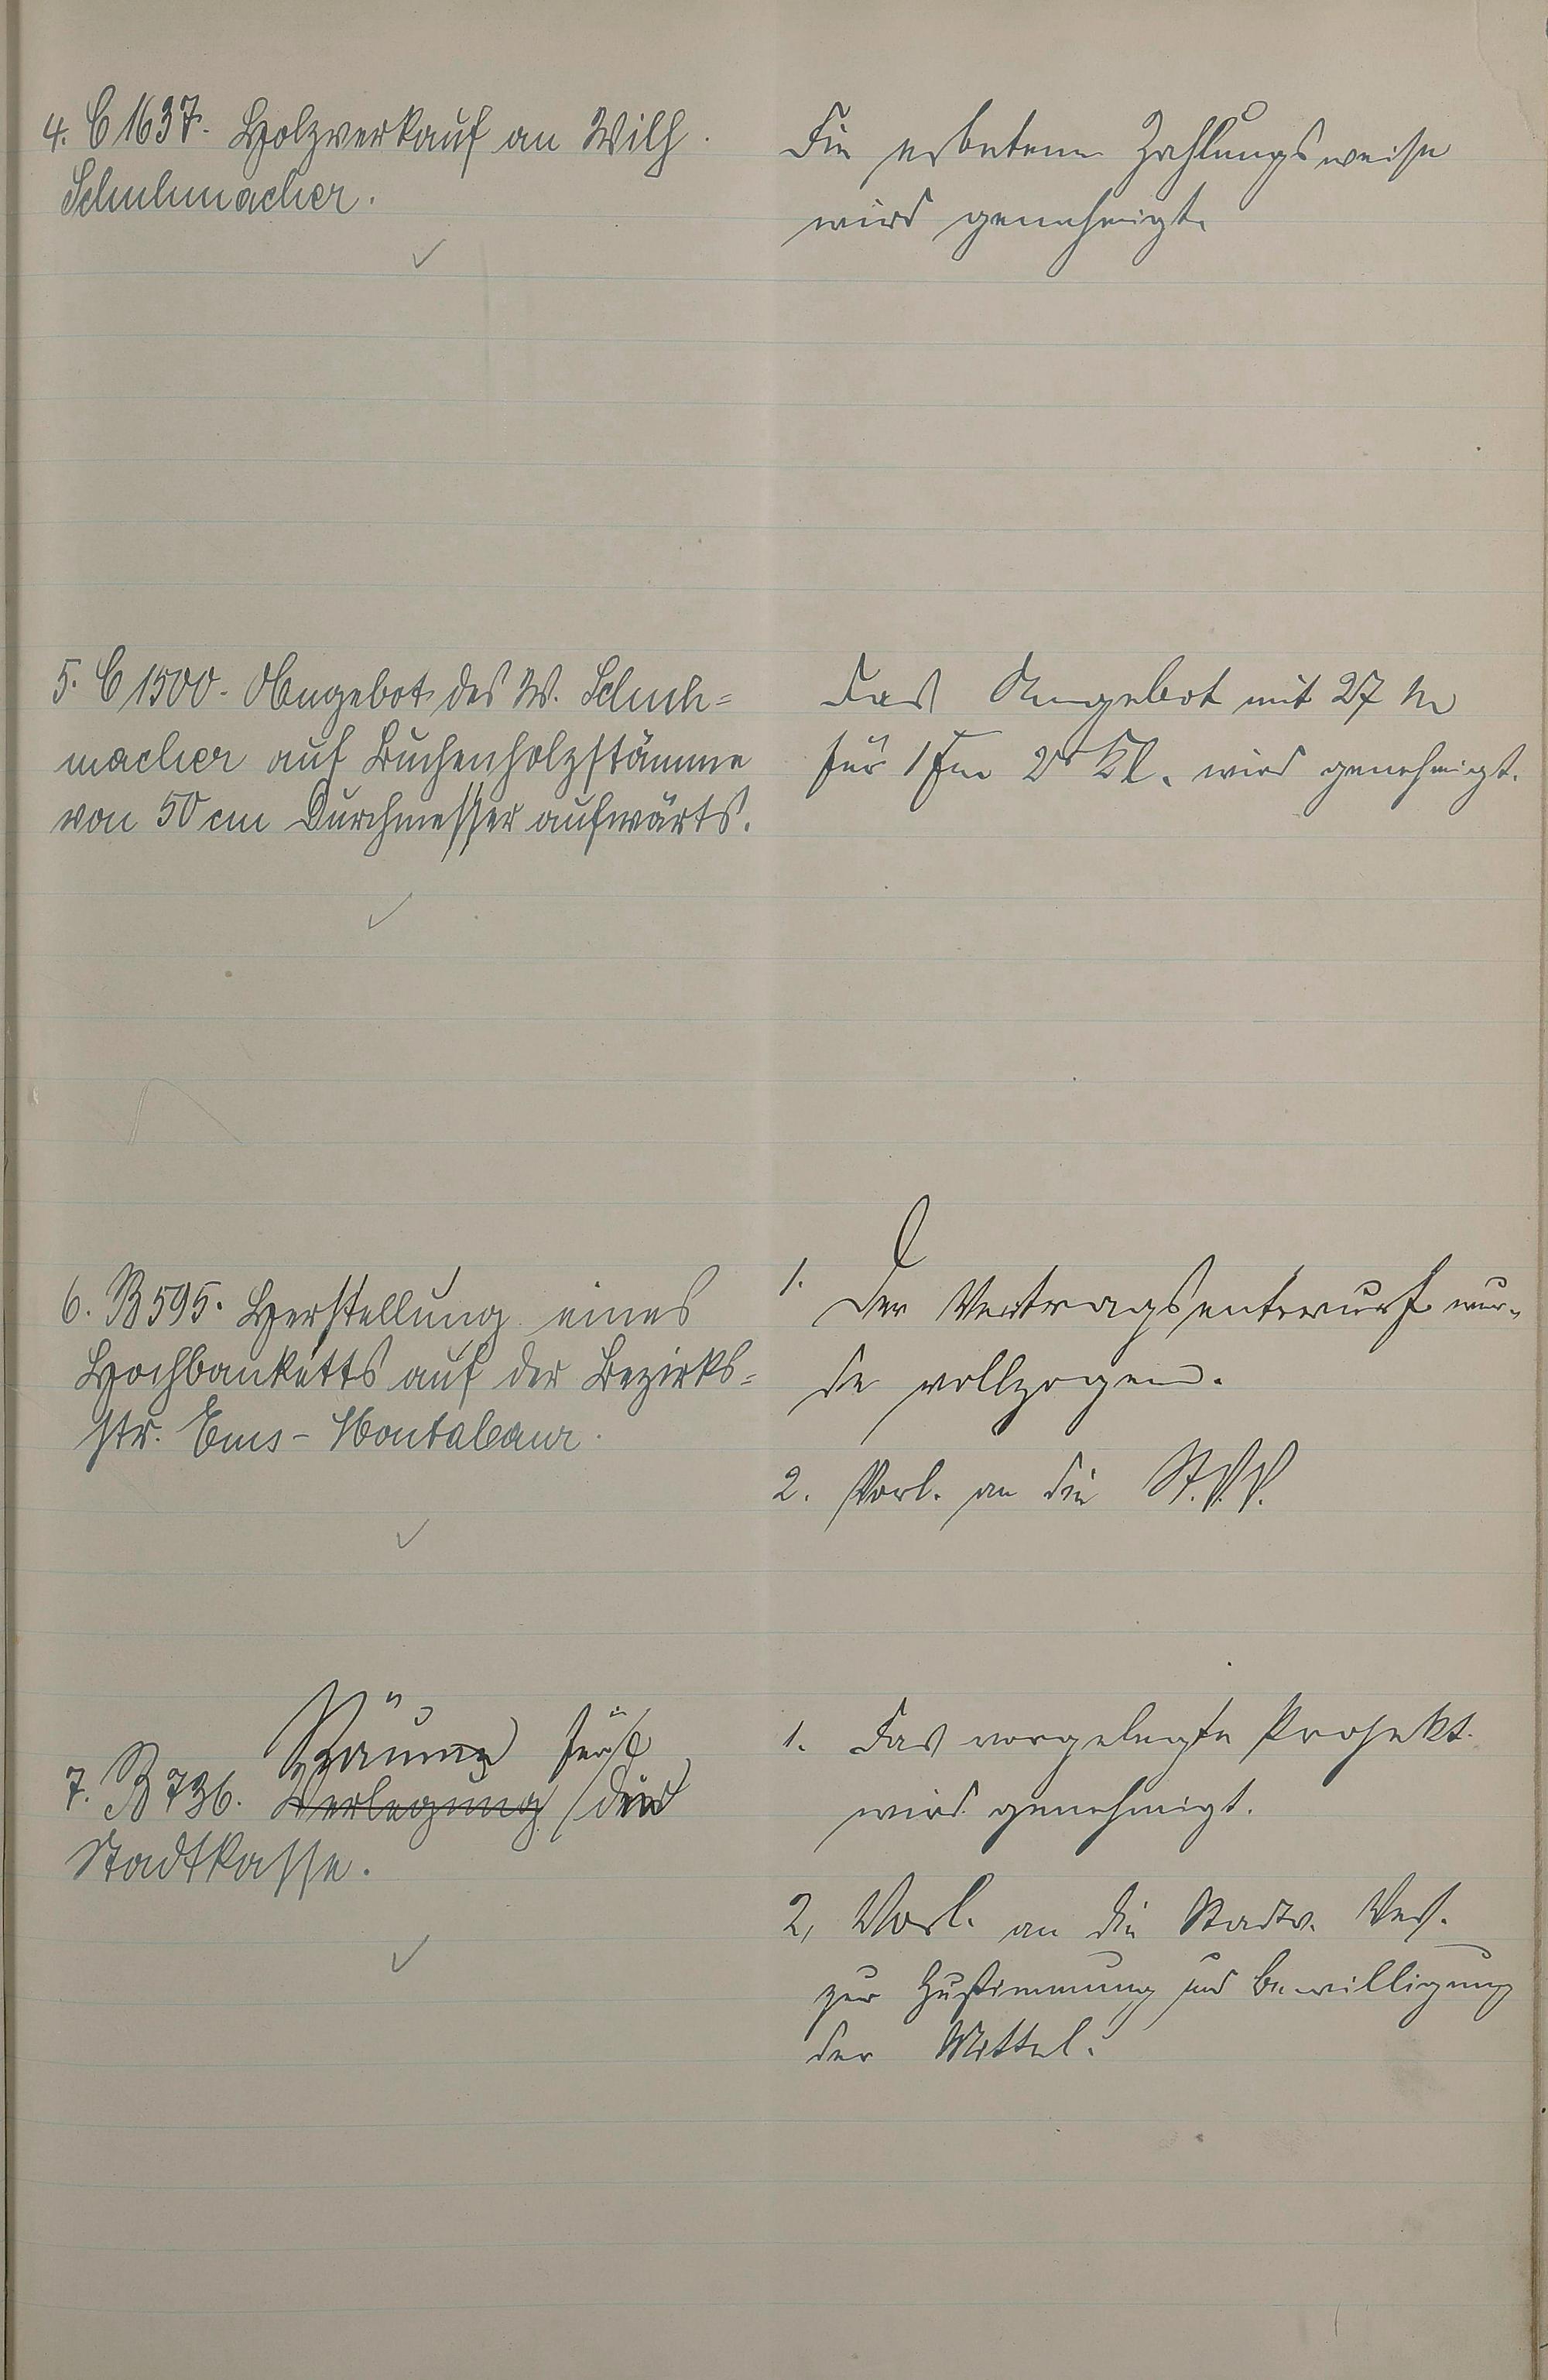 4. C 1637. Holzverkauf an Wilh.
Schuhmacher.
Die erbetene Zahlungsweise
wird genehmigt.
5. C 1500. Angebot des W. Schuh-
macher auf Buchenholzstämme
von 50 cm Durchmesser aufwärts.
Das Angebot mit 27 M
für 1 Fm 2r Kl. wird genehmigt.
6. B 595. Herstellung eines
Hochbanketts auf der Bezirks-
str. Ems-Montabaur.
1. Der Vertragsentwurf wur-
de vollzogen.
2. Vorl. an die St.V.V.
Räume für
7. B 736. Verlegung die
Stadtkasse.
1. Das vorgelegte Projekt
wird genehmigt.
2, Vorl. an die Stadtv. Vers.
zur Zustimmung und Bewilligung
der Mittel.